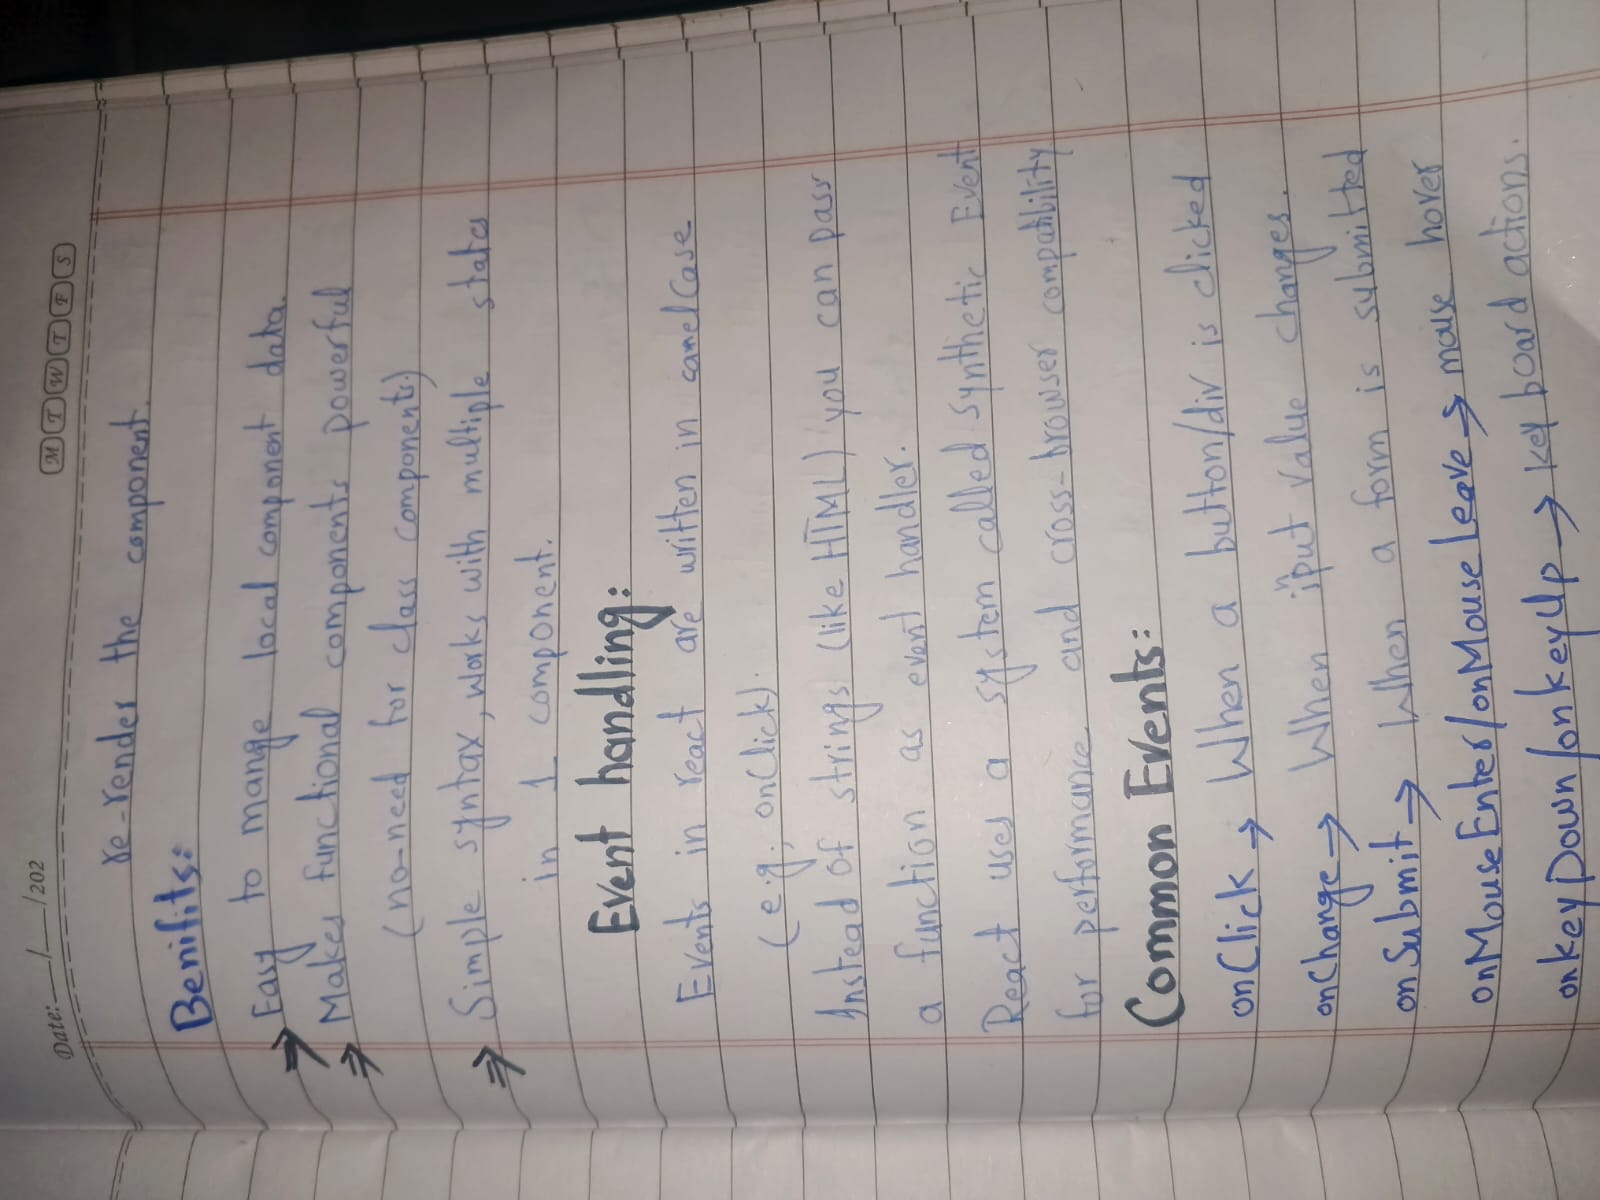 Date: ___/___/202
M T W T F S
re-render the component.
Benifits:
⇒ Easy to mange local component data.
⇒ Makes functional components powerful
(no-need for class components.)
⇒ Simple syntax, works with multiple states
in 1 component.
Event handling:
Events in react are written in camelCase
(e.g; onClick).
Instead of strings (like HTML) you can pass
a function as event handler.
React uses a system called Synthetic Event
for performance and cross-browser compatibility
Common Events:
onClick → When a button/div is clicked
onChange → When input value changes.
onSubmit → When a form is submitted
onMouseEnter/onMouseLeave → mouse hover
onkeyDown/onkeyUp → key board actions.